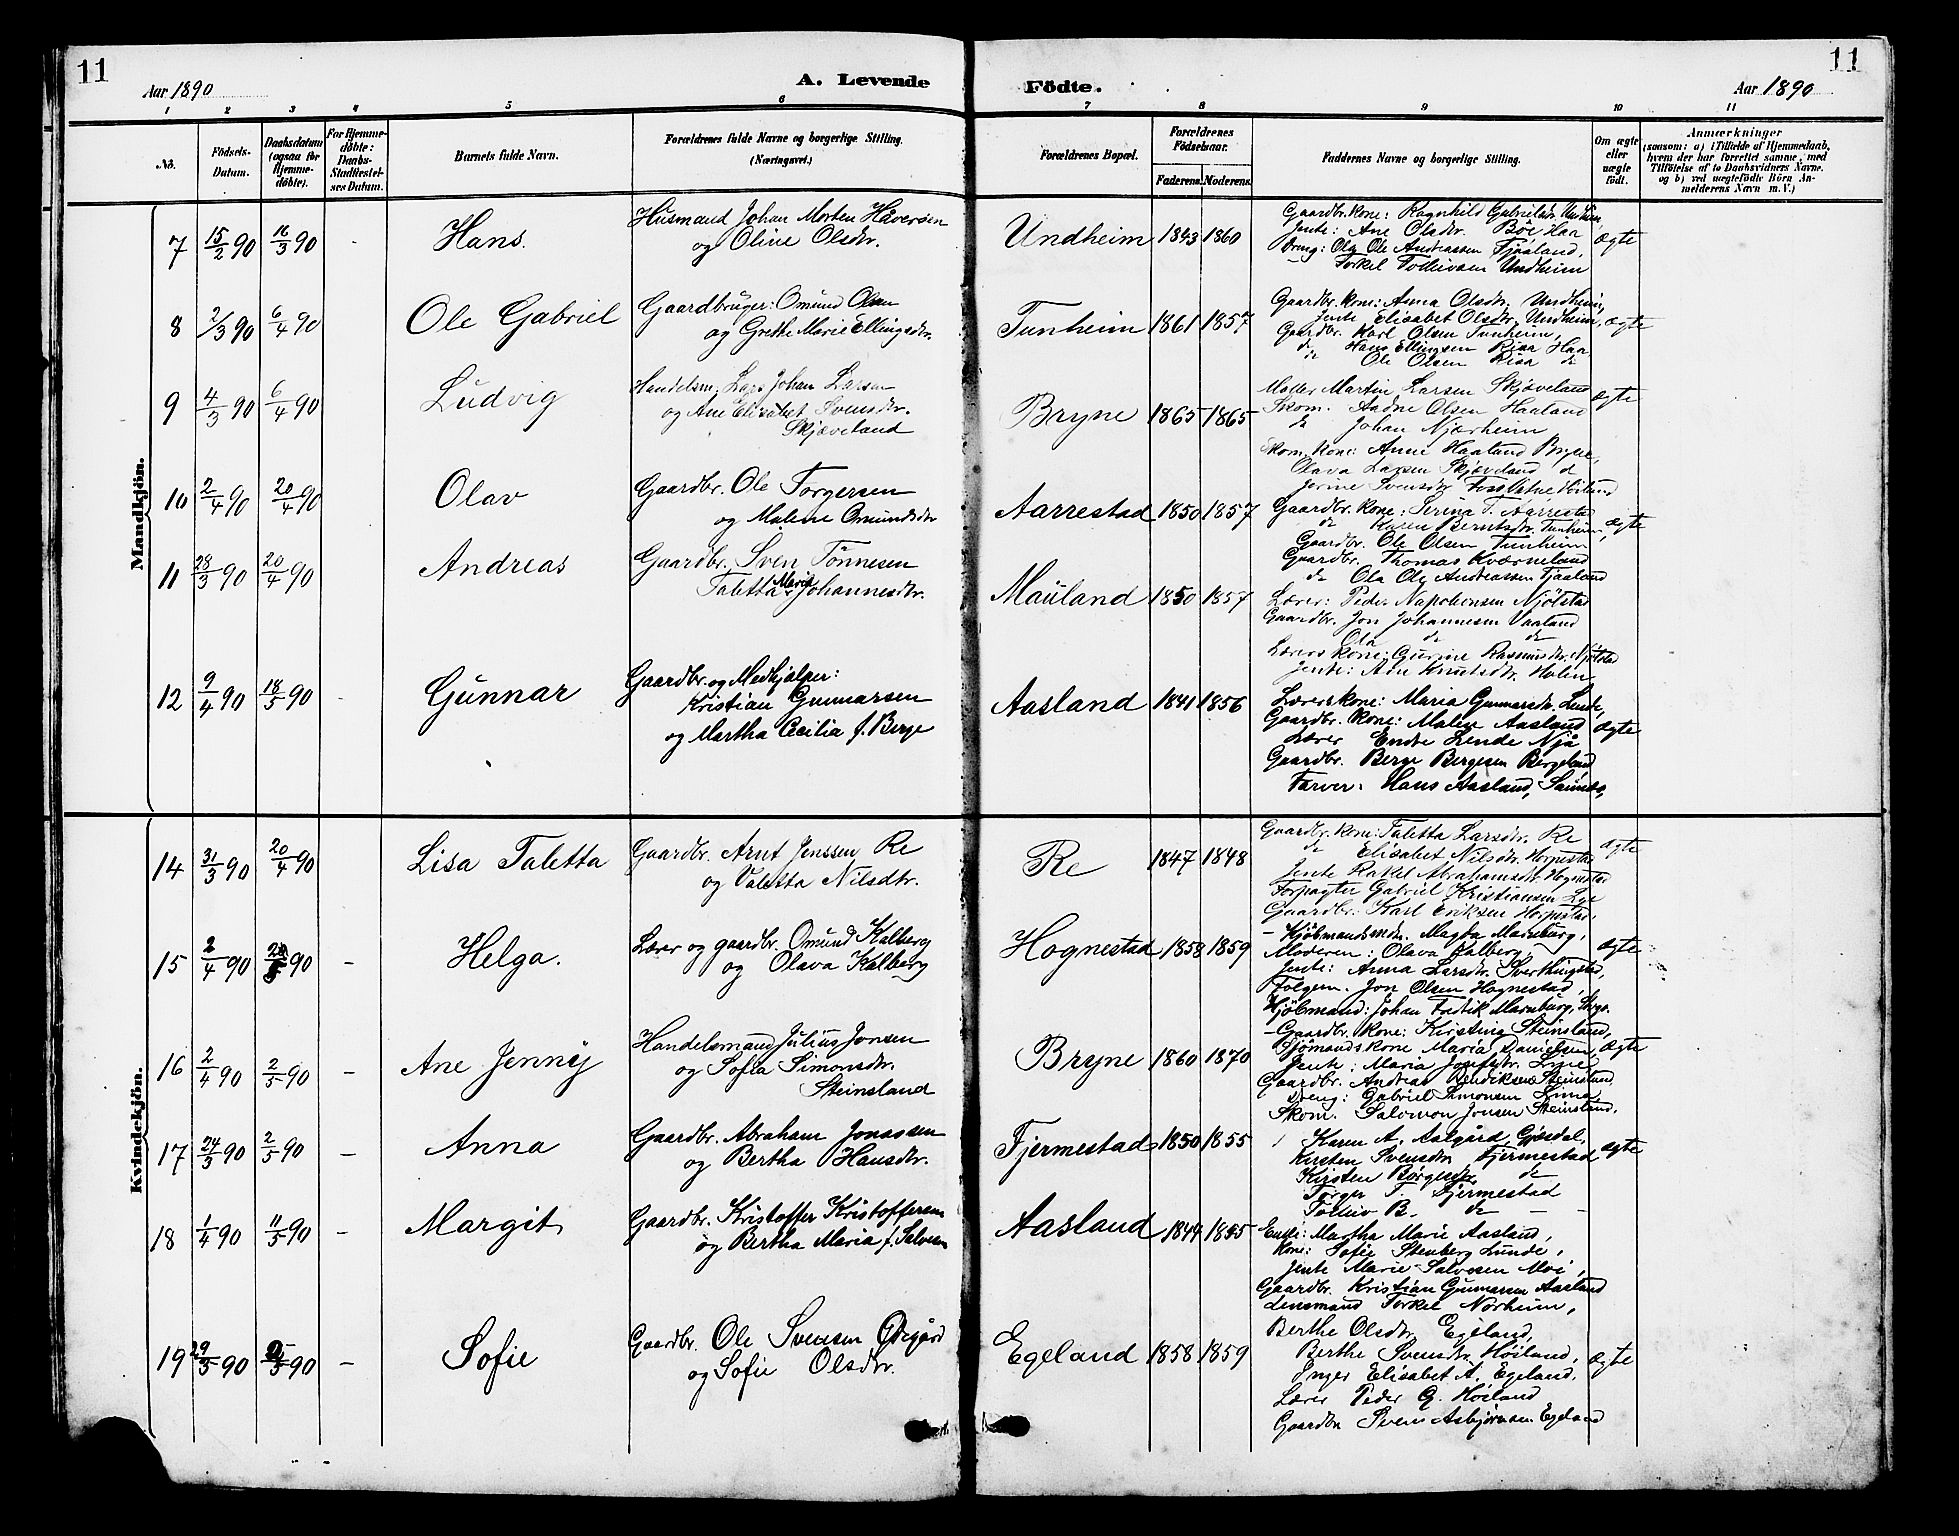 11
Aar 1890
A. Levende
Födte.
Aar 1890
11
1 2 3 4 5 6 7 8 9 10 11
No.
Födsels-
Datum.
Daabsdatum
(ogsaa for
Hjemme-
döbte).
For Hjemme-
döbte:
Daabs-
Stadfæstel-
ses Datum.
Barnets fulde Navn.
Forældrenes fulde Navne og borgerlige Stilling.
(Næringsvei.)
Forældrenes Bopæl.
Forældrenes
Födselsaar.
Faderens. Moderens.
Faddernes Navne og borgerlige Stilling.
Om ægte
eller
uægte
födt.
Anmærkninger
(saasom: a) i Tilfælde af Hjemmedaab,
hvem der har forrettet samme, med
Tilföielse af to Daabsvidners Navne.
og b) ved uægtefödte Börn An-
melderens Navn m. V.)
Mandkjön.
7 15/2 90 16/3 90 Hans.
Husmand Johan Morten Håversen
og Oline Olsdtr.
Undheim 1843 1860
Gaardbr. kone: Ragnhild Gabrielsdr. Undheim,
Jente: Ane Olsdtr. Böe Haa
Dreng: Ola Ole Andreassen Fjaaland,
Torkel Tollevsen Undheim
ægte
8 2/3 90 6/4 90 Ole Gabriel
Gaardbruger: Omund Olsen
og Grethe Marie Ellingsdtr.
Tunheim 1861 1857
Gaardbr. kone: Anna Olsdtr. Undheim,
Jente Elisabet Olsdtr. Undheim,
Gaardbr. Karl Olsen Tunheim,
do Hans Ellingsen Risa Haa
do Ole Olsen Risa do
ægte
9 4/3 90 6/4 90 Ludvig
Handelsm. Lars Johan Larsen
og Ane Elisabet Svensdtr.
Skjæveland
Bryne 1865 1865
Martin Larsen Skjæveland
Skom. Aadne Olsen Haaland
do Johan Njærheim
Skom. kone: Anne Haaland Bryne,
Olava Larsen Skjæveland do
Jorine Svensdtr.
ægte
10 2/4 90 20/4 90 Olav
Gaardbr. Ole Torgersen
og Malene Omundsdtr
Aarrestad 1850 1857
Gaardbr. kone: Serina T. Aarrestad
do Karen Berntsdtr. Tunheim,
Gaardbr. Ole Olsen Tunheim
Gaardbr. Thomas Kværneland
do Ola Ole Andreassen Fjaaland
ægte
11 28/3 90 20/4 90 Andreas
Gaardbr. Sven Tönnesen
Taletta Maria Johannesdtr.
Mauland 1850 1857
Lærer: Peder Napoleonsen Njölstad
Gaardbr. Jon Johannesen Vaaland
Ola do do
Lærers kone: Gurine Rasmusdtr. Njölstad
Jente: Ane Knutsdtr. Holen
12 9/4 90 18/5 90 Gunnar
Gaardbr. og Medhjælper:
Kristian Gunnarsen
og Martha Cecilia f. Berge
Aasland 1841 1856
Lærers kone: Maria Gunnarsdr. Lende,
Gaardbr. kone: Malene Aasland
Lærer Endre Lende Njå
Gaardbr. Berge Bergesen Bergeland
Farver: Hans Aasland,
ægte
Kvindekjön.
14 31/3 90 20/4 90 Lisa Taletta
Gaardbr. Arnt Jenssen Re
og Valetta Nilsdtr.
Re 1847 1848
Gaardbr. kone: Taletta Larsdtr. Re
do Elisabet Nilsdtr. Horpestad
Jente Rakel Abrahamsdtr. Hognestad
Forpagter Gabriel Kristiansen Lye
Gaardbr. Karl Eriksen Horpestad,
ægte
15 2/4 90 90 – Helga.
Lærer og gaardbr. Omund Kalberg
og Olava Kalberg
Hognestad 1858 1859
Magda Marnburg,
Moderen: Olava Kalberg,
Jente: Anna Larsdtr.
Jon Olsen Hognestad,
Kjöbmand: Johan Fredrik Marnburg,
ægte
16 2/4 90 2/5 90 – Ane Jenny
Handelsmand Julius Jonsen
og Sofia Simonsdtr.
Steinsland
Bryne 1860 1870
Gaardbr. kone: Kirstina Steinsland,
Sjömands kone Maria Danielsen
Jente: Maria
Gaardbr. Andreas Hendiksen Steinsland,
Dreng: Gabriel Simonsen Lima
Skom. Salomon Jonsen Steinsland.
ægte
17 24/3 90 2/5 90 – Anna
Gaardbr. Abraham Jonassen
og Bertha Hansdtr.
Fjermestad 1850 1855
Karen A. Aalgård, Gjesdal,
Kirsten Svensdtr Fjermestad
Kirsten Börgesdtr do
Torger T. Fjermestad
Tollev B. do
ægte
18 1/4 90 11/5 90 – Margit
Gaardbr. Kristoffer Kristoffersen
og Bertha Maria f. Salvesen
Aasland 1844 1855
Enke: Martha Marie Aasland,
Kone: Sofie Stenberg Lunde,
Jente Marie Salvesen Moi,
Gaardbr. Kristian Gunnarsen Aasland
Lensmand Torkel Norheim,
19 29/3 90 90 – Sofie
Gaardbr. Ole Svensen Ödegård
og Sofie Olsdtr.
Egeland 1858 1859
Berthe Olsdtr Egeland,
Berthe Svensdtr. Höiland,
Inger Elisabet A. Egeland,
Lærer Peder G. Höiland
Gaardbr Sven Asbjörnsen Egeland
ægte